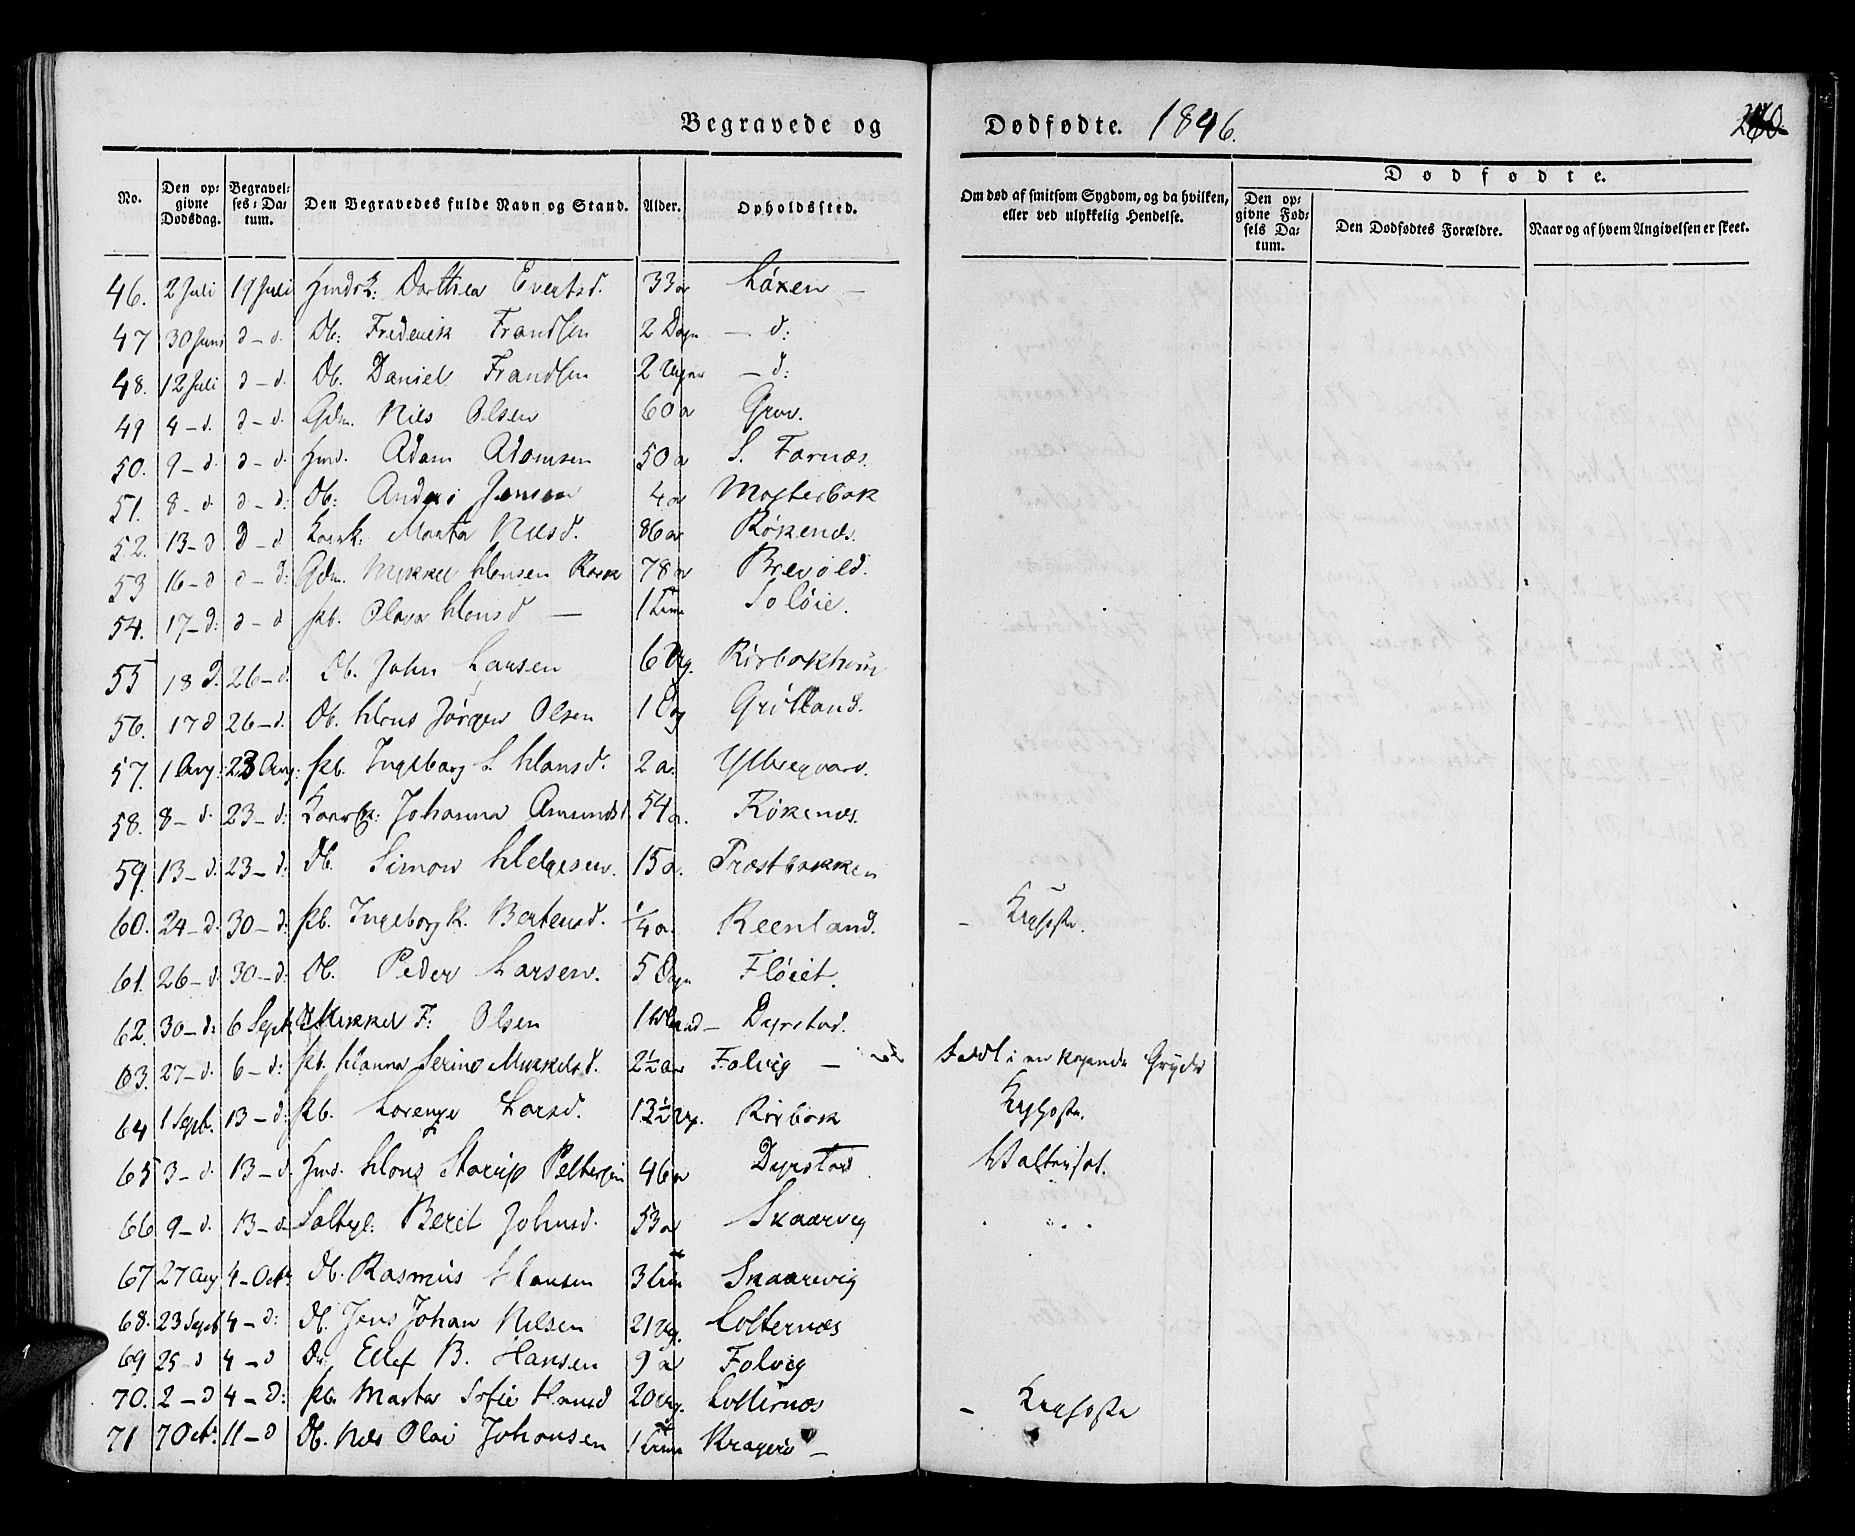 Begravede og Dødfødte. 1846.
No. Den opgivne Dødsdag. Begravelses-Datum. Den Begravedes fulde Navn og Stand. Alder. Opholdssted. Om død af smitsom Sygdom, og da hvilken, eller ved ulykkelig Hendelse. Dødfødte. Den opgivne Fødsels Datum. Den Dødfødtes Forældre. Naar og af hvem Angivelsen er skeet.
46. 2 Juli 19 Juli Dorthea Evertsd. 33 a Láxen –
47 30 Juni d – d. Db. Frederik Frandsen 2 Dage – d:
48. 12 Juli d – d. Db. Daniel Frandsen 2 Uger – d:
49 4 – d. d – d. Gdm. Nils Olsen 60 a Grov.
50. 9 – d. d – d. Hmd. Adam Adamsen 50 a S. Farnæs.
51. 8 – d. d – d: Db: Anders Jensen 4 a Mosterbak
52. 13 – d d – d Marta Nilsd. 86 a Røkenæs.
53 16 – d d – d: Gdm. Mykkel Hansen 78 a Brevold.
54. 17 – d: d – d Pb. Olava Hansd – 1 Time Soløie.
55 18 d. 26 – d. Db. John Larsen 6 Ug.
56. 17 d 26 – d. Db. Hans Jørgen Olsen 1 Dg Grøtland.
57. 1 Aug: 23 Aug: Pb. Ingeborg L. Hansd. 2 a.
58. 8 – d. 23 – d: Johanna Amundsd. 54 a. Røkenæs.
59. 13 – d. 23 – d: Db. Simon Helgesen. 15 a. Træstbakken
60. 24 – d: 30 – d: Pb. Ingeborg K. Bertensd. ¼ a. Reenland. – Kighoste.
61. 26 – d. 30 – d: Db. Peder Larsen. 5 Dage Fløiet.
62. 30 – d: 6 Sept. Mikkel F: Olsen 1 Maaned – Dyrstad.
63. 27 – d. 6 – d: Pb. Hanna Serine Mikkelsd. 2½ a Folvig – faldt i en kogende Gryde
64 1 Sept. 13 – d: Pb. Larsd. 13½ Ug. Rørbak Kighoste.
65 3 – d. 13 – d. Hmd. Hans Starup Pettersen 46 a Dyrstad Vattersot.
66 9 – d. 13 – d. Berit Johnsd. 53 a Skaarvig
67 27 Aug 4 – Octr. Db. Rasmus Hansen 3 Skaarevig
68. 23 Sept 4 – d: Db. Jens Johan Nilsen 21 Ug. Lolternæs
69 25 – d 4 – d Ellef B. Hansen 9 a Folvig
70. 2 – d 4 – d: Pb. Marta Sofie Hansd 20 Ug. – Kighoste
71 7 Octr. 11 – d Db. Nils Olai Johansen 1 Time Kragerø –